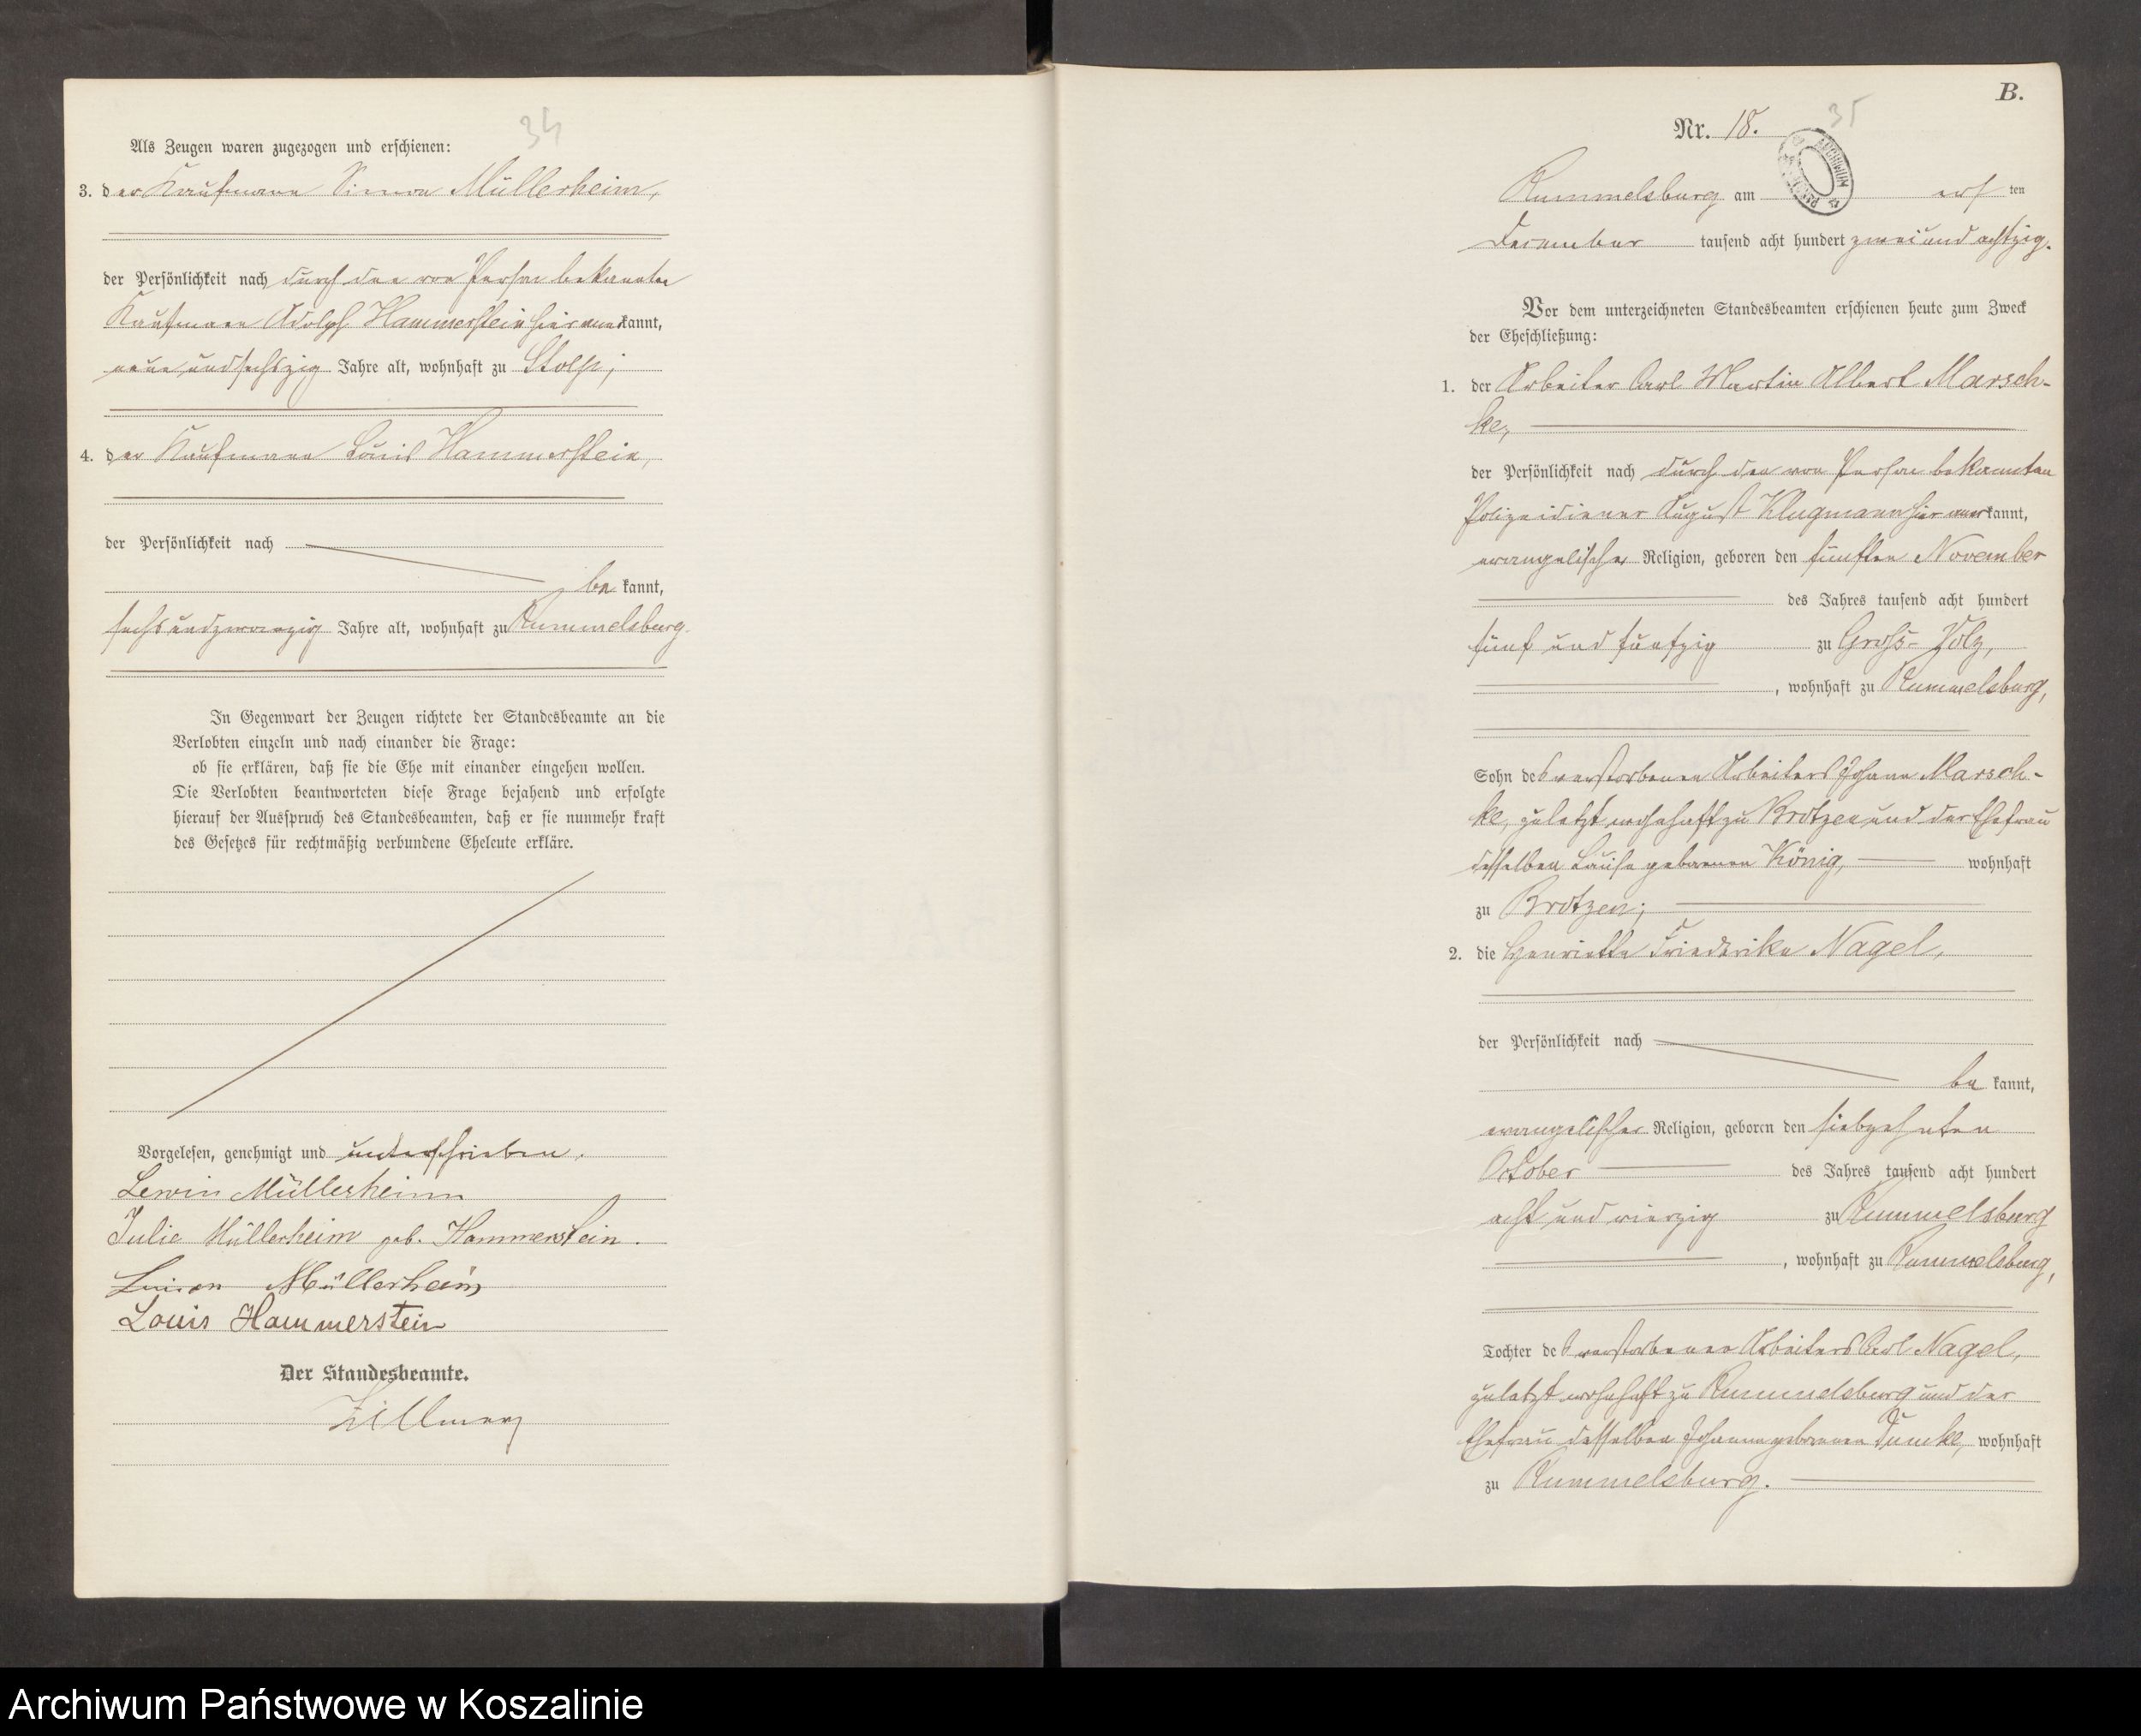 34
Als Zeugen waren zugezogen und erschienen:
3. der Kaufmann Simon Müllerheim,
der Persönlichkeit nach durch den von Person bekannten
Kaufmann Adolph Hammerstein hier anerkannt,
neun und sechszig Jahre alt, wohnhaft zu Stolp;
4. der Kaufmann Louis Hammerstein,
der Persönlichkeit nach
be kannt,
sechs und zwanzig Jahre alt, wohnhaft zu Rummelsburg.
In Gegenwart der Zeugen richtete der Standesbeamte an die
Verlobten einzeln und nach einander die Frage:
ob sie erklären, daß sie die Ehe mit einander eingehen wollen.
Die Verlobten beantworteten diese Frage bejahend und erfolgte
hierauf der Ausspruch des Standesbeamten, daß er sie nunmehr kraft
des Gesetzes für rechtmäßig verbundene Eheleute erkläre.
Vorgelesen, genehmigt und unterschrieben.
Lewin Müllerheim
Julie Müllerheim geb. Hammerstein.
Simon Müllerheim
Louis Hammerstein
Der Standesbeamte.
Zillmer
B.
35
Nr. 18.
ARCHIWUM
Rummelsburg am ersten
Dezember tausend acht hundert zwei und achtzig.
Vor dem unterzeichneten Standesbeamten erschienen heute zum Zweck
der Eheschließung:
1. der Arbeiter Carl Martin Albert Marsch-
ke,
der Persönlichkeit nach durch den von Person bekannten
Polizeidiener August Klugmann hier anerkannt,
evangelischer Religion, geboren den fünften November
des Jahres tausend acht hundert
fünf und fünfzig zu Groß-Volz,
, wohnhaft zu Rummelsburg,
Sohn des verstorbenen Arbeiters Johann Marsch-
ke, zuletzt wohnhaft zu Brotzen und der Ehefrau
desselben Louise geborenen König, wohnhaft
zu Brotzen;
2. die Henriette Friederike Nagel,
der Persönlichkeit nach
be kannt,
evangelischer Religion, geboren den siebzehnten
October des Jahres tausend acht hundert
acht und vierzig zu Rummelsburg
, wohnhaft zu Rummelsburg,
Tochter des verstorbenen Arbeiters Carl Nagel,
zuletzt wohnhaft zu Rummelsburg und der
Ehefrau desselben Johanne geborenen Dumke, wohnhaft
zu Rummelsburg.
Archiwum Państwowe w Koszalinie